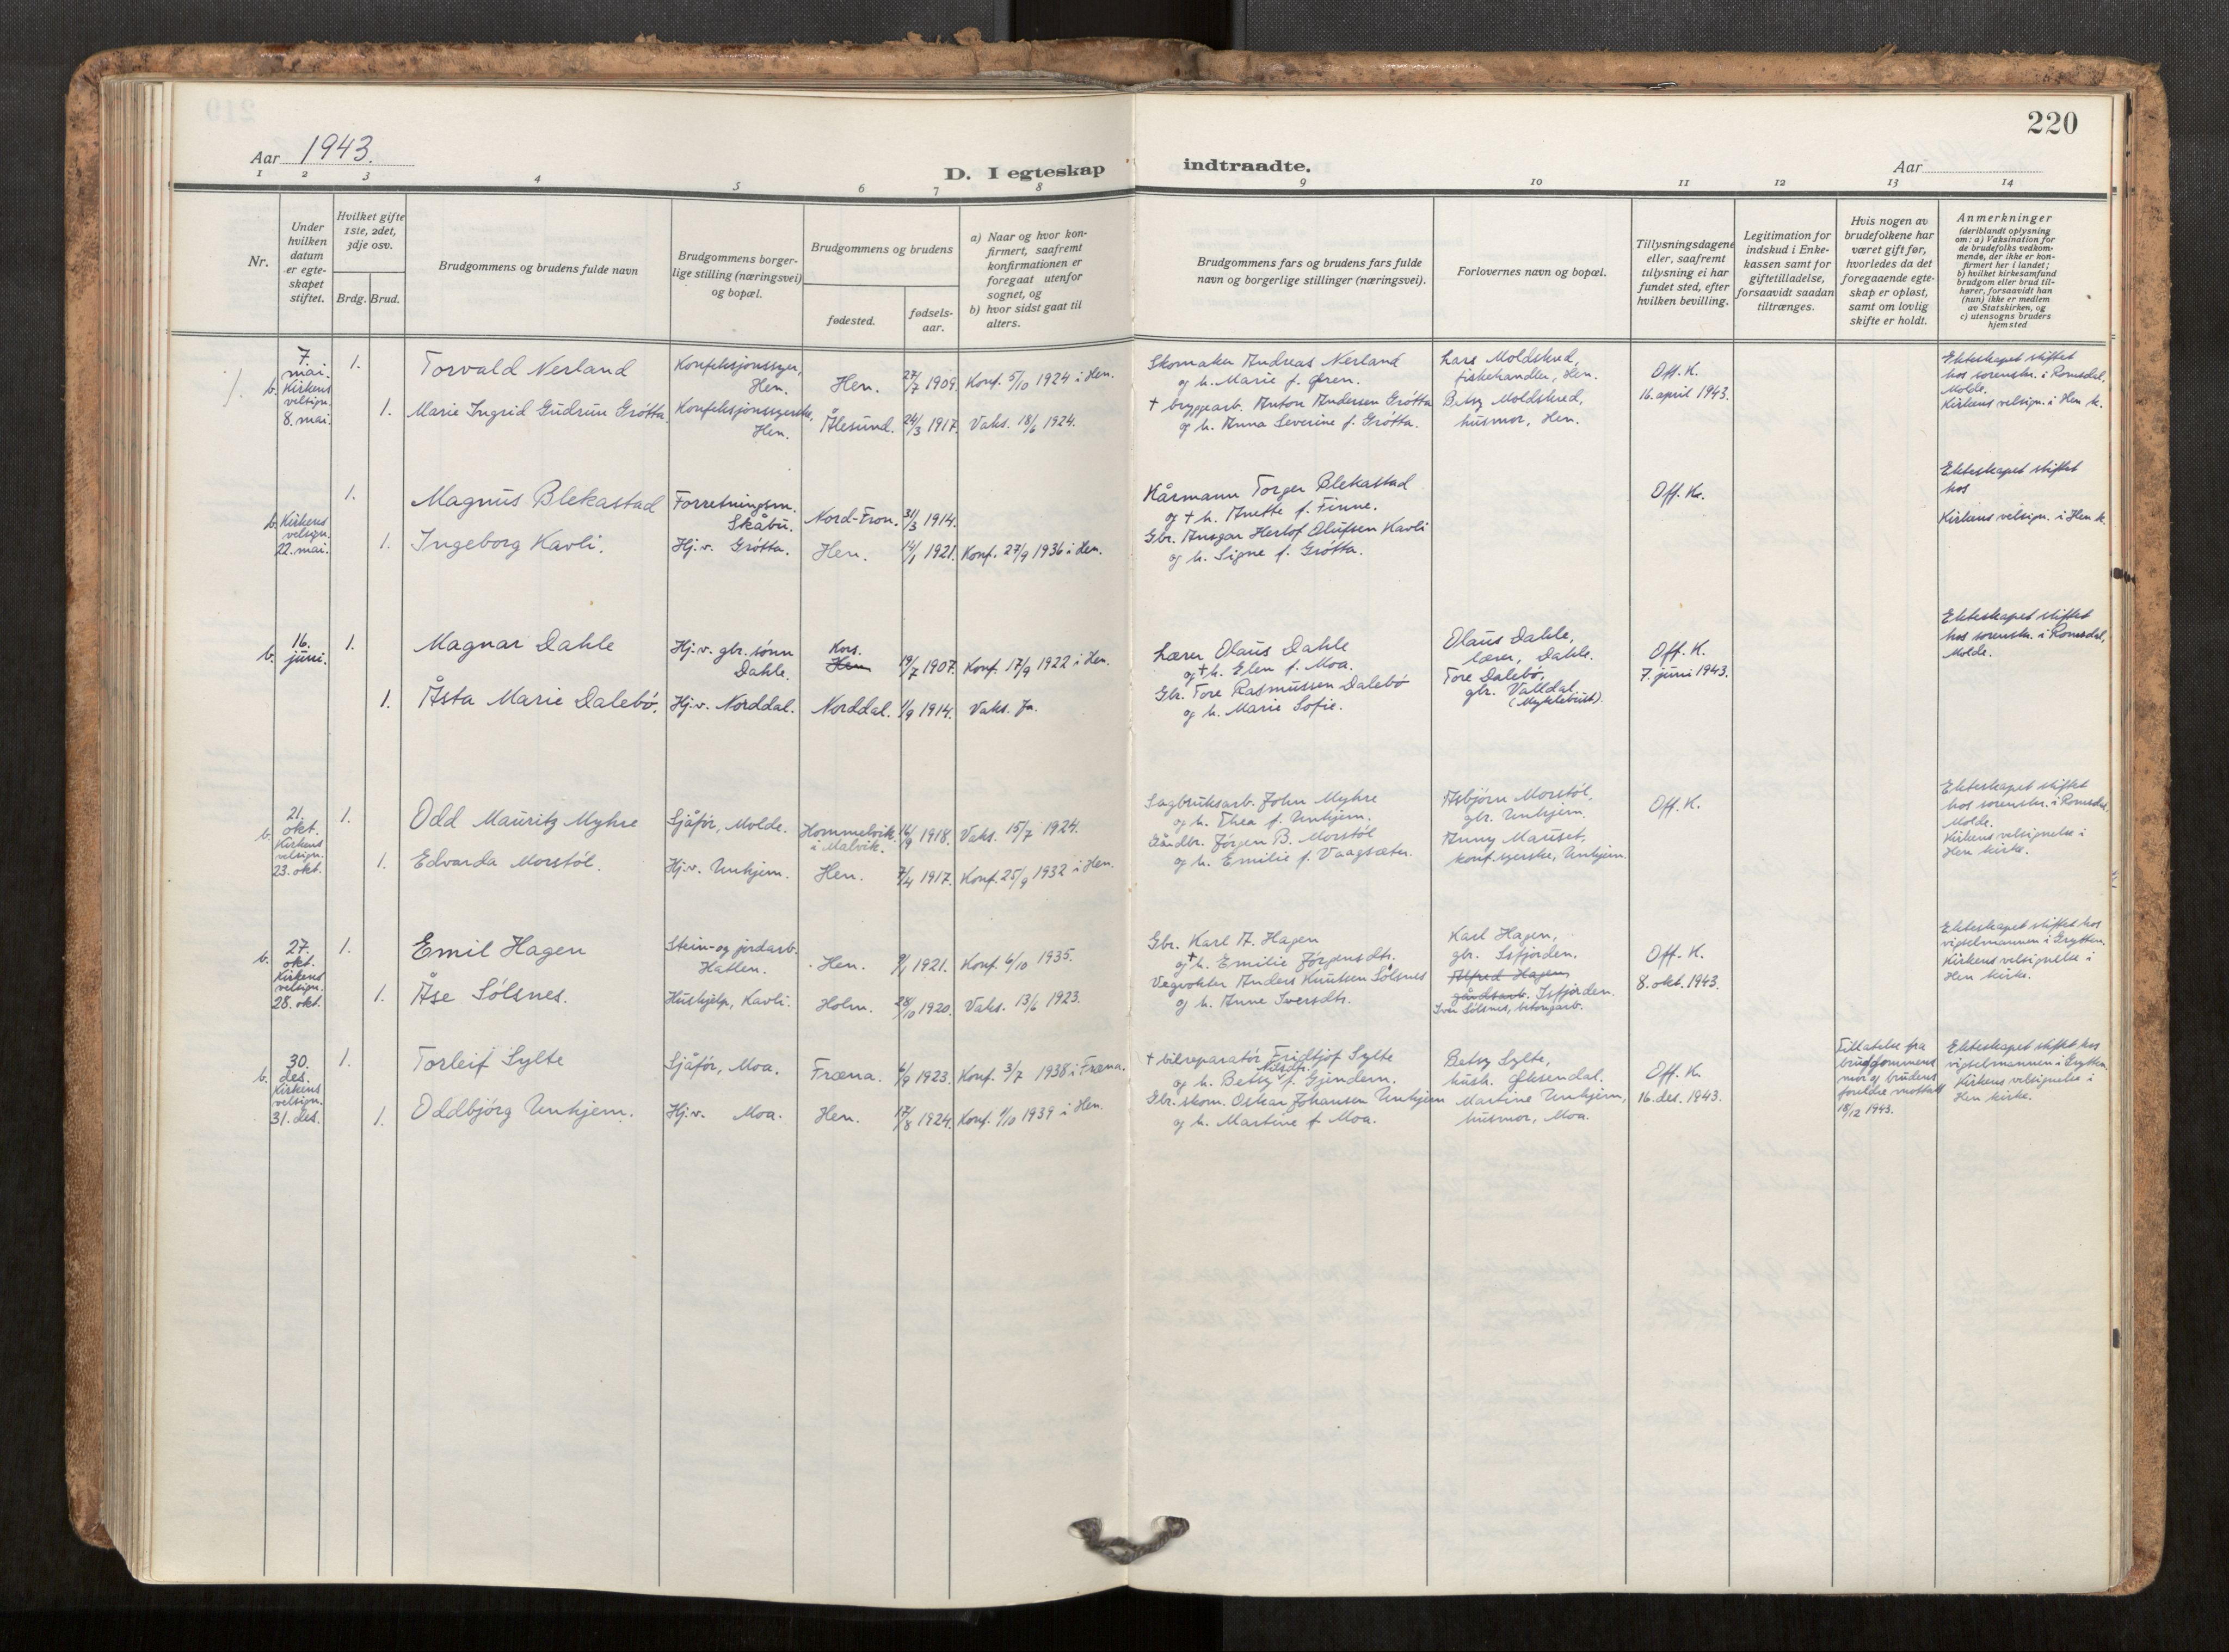 Aar 1943.
D. I egteskap
indtraadte.
220
Aar
1 2 3 4 5 6 7 8 9 10 11 12 13 14
Nr.
Under
hvilken
datum
er egte-
skapet
stiftet.
Hvilket gifte
1ste, 2det,
3dje osv.
Brdg. Brud.
Brudgommens og brudens fulde navn
Brudgommens borger-
lige stilling (næringsvei)
og bopæl.
Brudgommens og brudens
fødested.
fødsels-
aar.
a) Naar og hvor kon-
firmert, saafremt
konfirmationen er
foregaat utenfor
sognet, og
b) hvor sidst gaat til
alters.
Brudgommens fars og brudens fars fulde
navn og borgerlige stillinger (næringsvei).
Forlovernes navn og bopæl.
Tillysningsdagene
eller, saafremt
tillysning ei har
fundet sted, efter
hvilken bevilling.
Legitimation for
indskud i Enke-
kassen samt for
giftetilladelse,
forsaavidt saadan
tiltrænges.
Hvis nogen av
brudefolkene har
været gift før,
hvorledes da det
foregaaende egte-
skap er opløst,
samt om lovlig
skifte er holdt.
Anmerkninger
(deriblandt oplysning
om: a) Vaksination for
de brudefolks vedkom-
mende, der ikke er kon-
firmert her i landet;
b) hvilket kirkesamfund
brudgom eller brud til-
hører, forsaavidt han
(hun) ikke er medlem
av Statskirken, og
c) utensogns bruders
hjemsted
7.
mai.
b. Kirkens
velsign.
8. mai.
1.
Torvald Nerland
Konfeksjonssyer,
Hen.
Hen.
27/7 1909.
Konf. 5/10 1924 i Hen.
Skomaker Andreas Nerland
og h. Marie f. Øren.
Lars Moldskred,
fiskehandler, Hen.
Off. K.
16. april 1943.
Ekteskapet stiftet
hos sorenskr. i Romsdal,
Molde.
Kirkens velsign. i Hen k.
1.
Marie Ingrid Gudrun Grótta.
Konfeksjonssyerske,
Hen.
Ålesund.
24/3 1917.
Vaks. 18/6 1924.
† bryggearb. Anton Andersen Grótta
og h. Anna Severine f. Grótta.
Betsy Moldskred,
husmor, Hen.
b. Kirkens
velsign.
22. mai.
1.
Magnus Blekastad
Forretningsm.
Skåbu.
Nord-Fron.
31/3 1914.
Kårmann Torger Blekastad
og † h. Anette f. Finne.
Off. K.
Ekteskapet stiftet
hos
Kirkens velsign. i Hen k.
1.
Ingeborg Kavli.
Hj.v. Grótta.
Hen.
14/1 1921.
Konf. 27/9 1936 i Hen.
Gbr. Ansgar Herlof Olufsen Kavli
og h. Signe f. Grótta.
b.
16.
juni.
1.
Magnar Dahle
Hj.v. gbr. sønn
Dahle.
Kors.
Hen
19/7 1907.
Konf. 17/9 1922 i Hen.
Lærer Olaus Dahle
og † h. Elen f. Moa.
Olaus Dahle,
lærer, Dahle.
Off. K.
7. juni 1943.
Ekteskapet stiftet
hos sorenskr. i Romsdal,
Molde.
1.
Åsta Marie Dalebó.
Hj.v. Norddal.
Norddal.
1/9 1914.
Vaks. Ja.
Gbr. Tore Rasmussen Dalebó
og h. Marie Sofie.
Tore Dalebó,
gbr. Valldal.
(Myklebust).
21.
b. okt.
Kirkens
velsign.
23. okt.
1.
Odd Mauritz Myhre
Sjåfór, Molde.
Hommelvik
i Malvik.
16/9 1918.
Vaks. 15/7 1924.
Sagbruksarb. John Myhre
og h. Thea f. Unhjem.
Asbjórn Morstól,
gbr. Unhjem.
Off. K.
Ekteskapet stiftet
hos sorenskr. i Romsdal,
Molde.
Kirkens velsignelse i
Hen kirke.
1.
Edvarda Morstól.
Hj.v. Unhjem.
Hen.
7/4 1917.
Konf. 25/9 1932 i Hen.
Gårdbr. Jórgen B. Morstól
og h. Emilie f. Vaagsæter.
Anny Mauset,
konf. syerske, Unhjem.
27.
b. okt.
Kirkens
velsign.
28. okt.
1.
Emil Hagen
Stein- og jordarb.
Hatlen.
Hen.
9/1 1921.
Konf. 6/10 1935.
Gbr. Karl A. Hagen
og † h. Emilie Jórgensdtr.
Karl Hagen,
gbr. Isfjorden.
Off. K.
8. okt. 1943.
Ekteskapet stiftet hos
vigselmannen i Grytten.
Kirkens velsignelse i
Hen kirke.
1.
Åse Sólsnes.
Hushjelp, Kavli.
Holm.
28/10 1920.
Vaks. 13/6 1923.
Vegvokter Anders Knutsen Sólsnes
og h. Anne Iversdtr.
Alfred Hagen
gårdsarb. Isfjorden.
Iver Sólsnes, betongarb.
30.
b. des.
Kirkens
velsign.
31. des.
1.
Torleif Sylte
Sjåfór, Moa.
Fræna.
6/9 1923.
Konf. 3/7 1938 i Fræna.
† bilreparatór Fridtjof Sylte
og h. Betsy Nilsdtr. f. Gjendem.
Betsy Sylte,
hush. Øksendal.
Off. K.
16. des. 1943.
Tillatelse fra
brudgommens
mor og brudens
foreldre mottatt
18/12 1943.
Ekteskapet stiftet hos
vigselmannen i Grytten.
Kirkens velsignelse i
Hen kirke.
1.
Oddbjórg Unhjem.
Hj.v. Moa.
Hen.
17/8 1924.
Konf. 1/10 1939 i Hen.
Gbr. skom. Oskar Johansen Unhjem
og h. Martine f. Moa.
Martine Unhjem,
husmor, Moa.